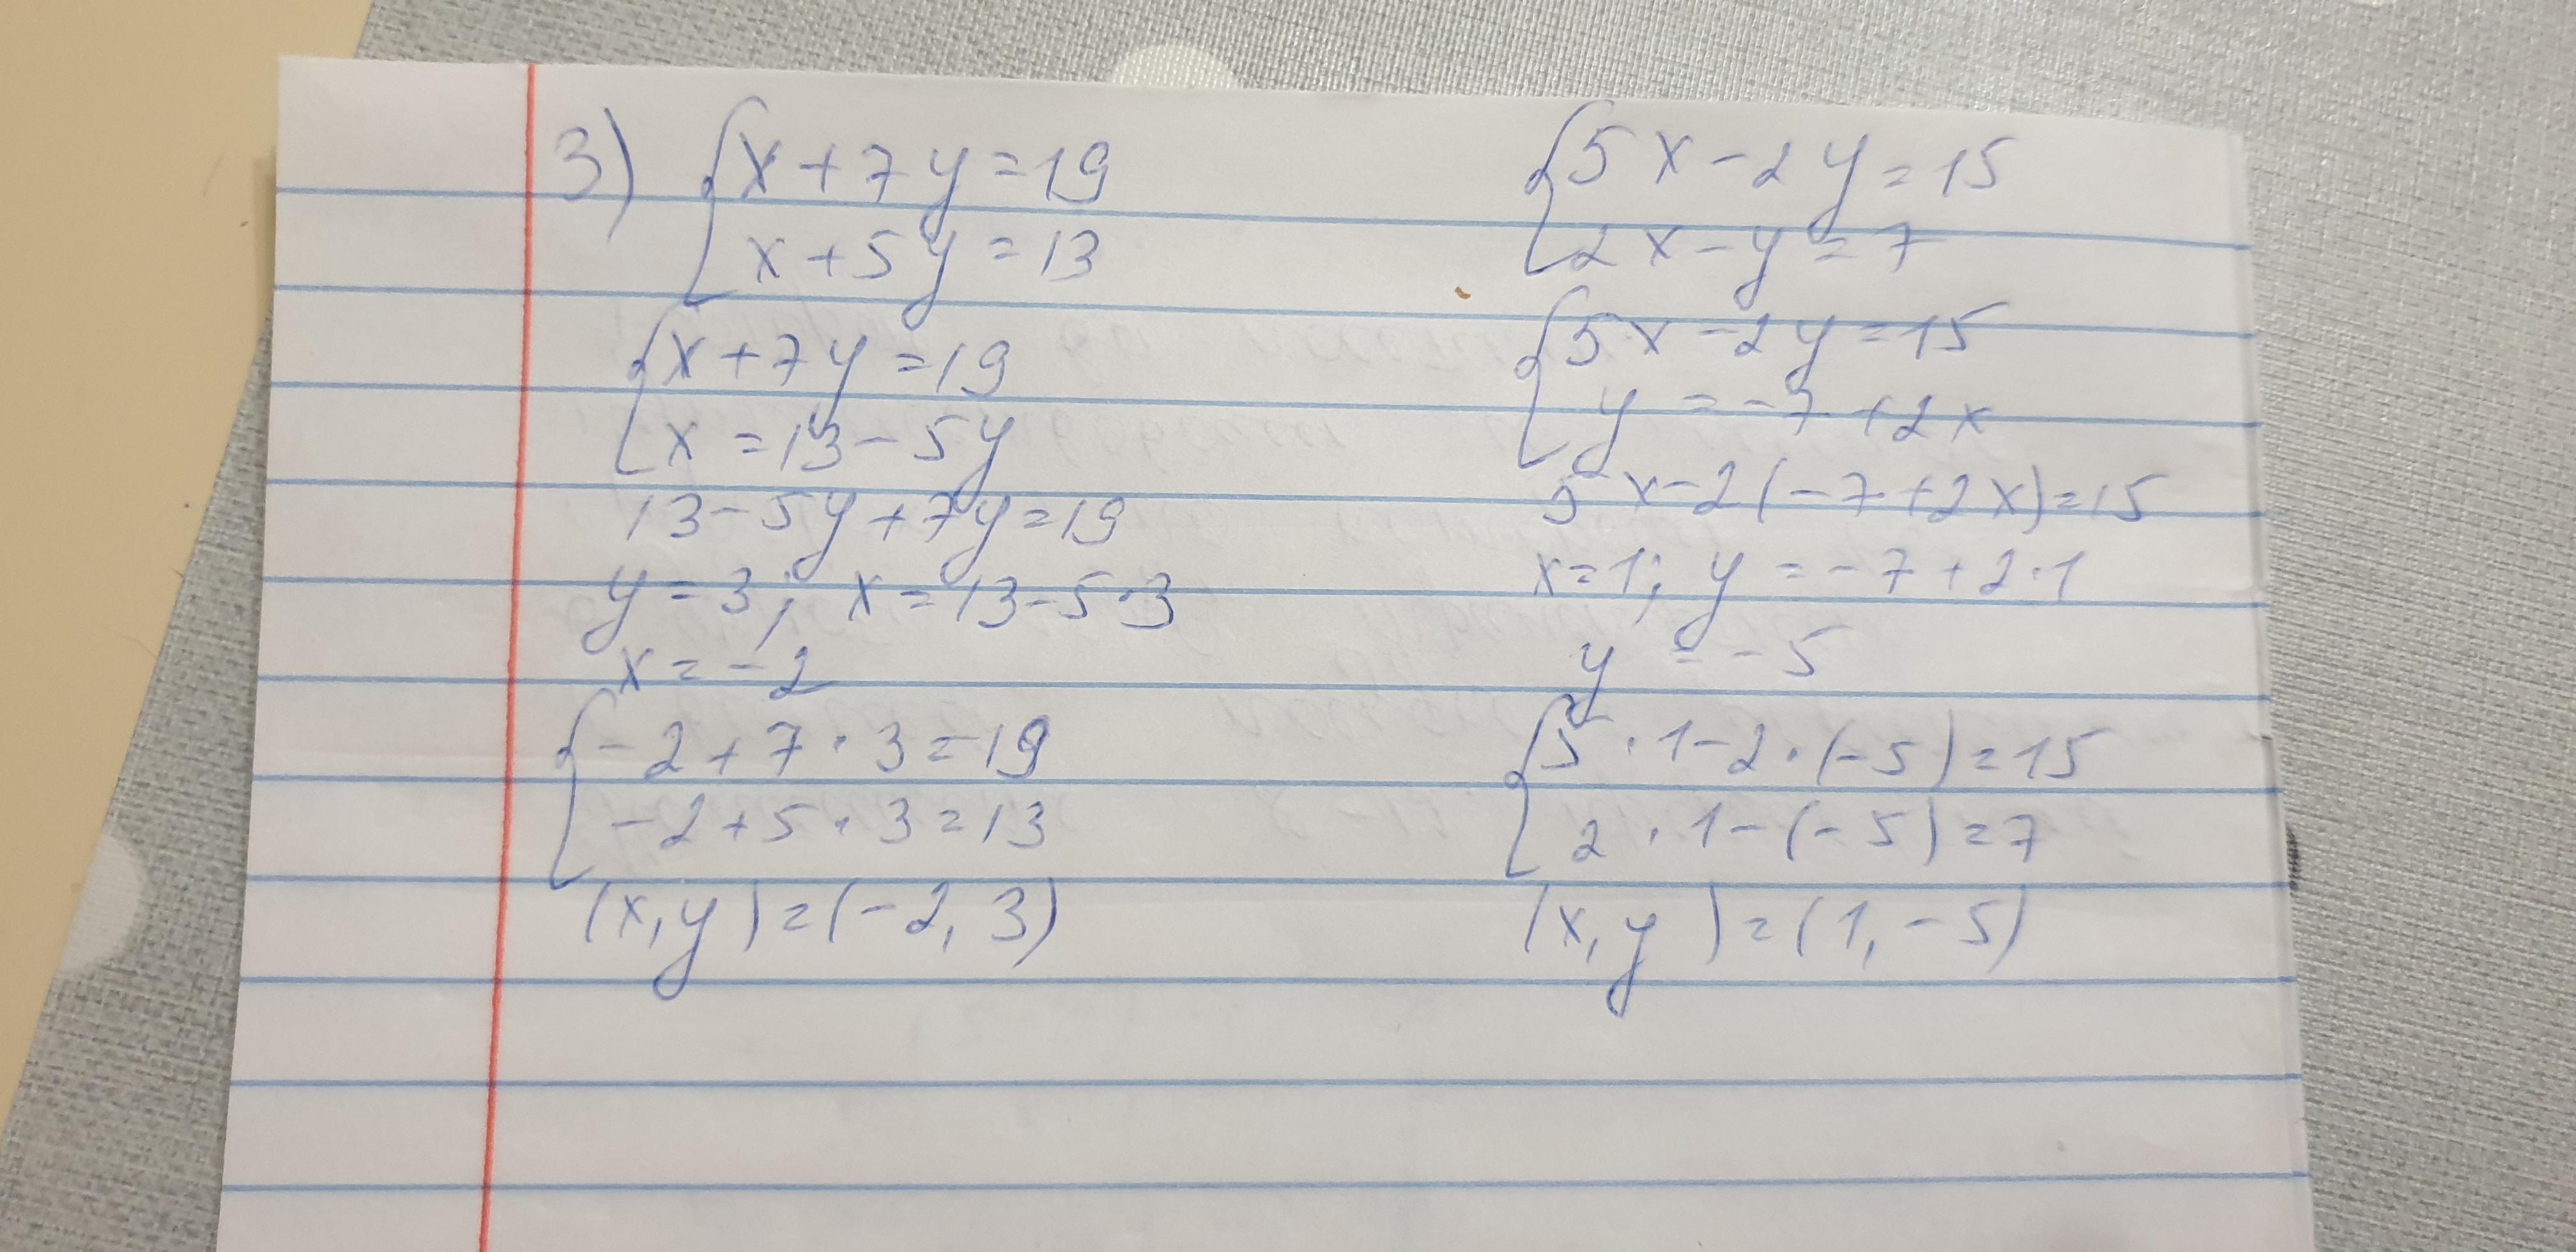 3) {x+7y=19
x+5y=13
{x+7y=19
x=13-5y
13-5y+7y=19
y=3; x=13-5·3
x=-2
{-2+7·3=19
-2+5·3=13
(x,y)=(-2,3)
{5x-2y=15
2x-y=7
{5x-2y=15
y=-7+2x
5x-2(-7+2x)=15
x=1; y=-7+2·1
y=-5
{5·1-2·(-5)=15
2·1-(-5)=7
(x,y)=(1,-5)